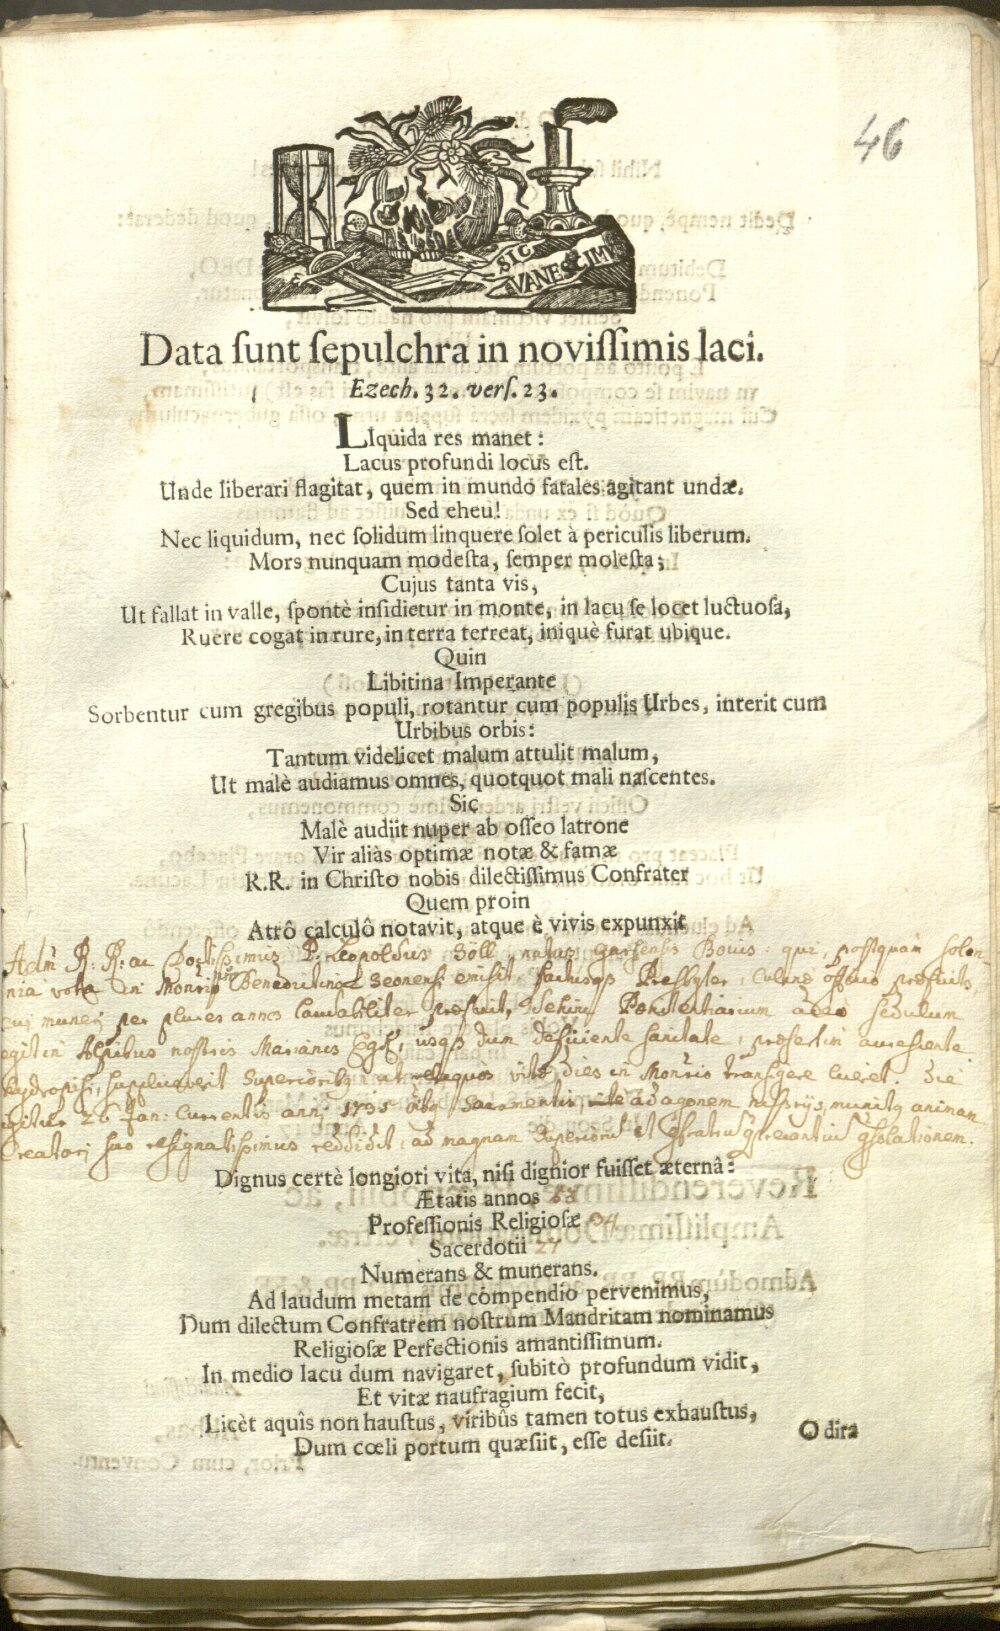 46
SIC
VANESCIMVS
Data sunt sepulchra in novissimis laci.
Ezech. 32. vers. 23.
LIquida res manet:
Lacus profundi locus est.
Unde liberari flagitat, quem in mundo fatales agitant undæ.
Sed eheu!
Nec liquidum, nec solidum linquere solet à periculis liberum.
Mors nunquam modesta, semper molesta;
Cujus tanta vis,
Ut fallat in valle, spontè insidietur in monte, in lacu se locet luctuosa,
Ruere cogat in rure, in terra terreat, iniquè furat ubique.
Quin
Libitina Imperante
Sorbentur cum gregibus populi, rotantur cum populis Urbes, interit cum
Urbibus orbis:
Tantum videlicet malum attulit malum,
Ut malè audiamus omnes, quotquot mali nascentes.
Sic
Malè audiit nuper ab osseo latrone
Vir aliàs optimæ notæ & famæ
R.R. in Christo nobis dilectissimus Confrater
Quem proin
Atrô calculô notavit, atque è vivis expunxit
Adm R: R: ac Doctissimus P. Leopoldus Söll, natus Garsensis Boius: qui, postquam solen
nia vota in Monrio Benedictino Seonensi emisit, factusqs Presbyter, Culinæ officio præfuit,
cui muneri per plures annos laudabiliter præfuit, dehinc Poenitentiarium adeo sedulum
egit in Alpibus nostris Marianis Egk, usqs dum deficiente sanitate, præsertim accrescente
hydropisi, supplicaverit Superioribq ut reliquos vitæ dies in Monrio transigere liceret. Die
igitur 26 Jan: Currentis anni 1735 Sacramentis, ad agonem necessarijs, munitq animam
Creatori suo resignatissimus reddidit, ad magnam Superioru et consolationem.
Dignus certè longiori vita, nisi dignior fuisset æternâ:
Ætatis annos 58
Professionis Religiosæ 34
Sacerdotii 27
Numerans & munerans.
Ad laudum metam de compendio pervenimus,
Dum dilectum Confratrem nostrum Mandritam nominamus
Religiosæ Perfectionis amantissimum.
In medio lacu dum navigaret, subitò profundum vidit,
Et vitæ naufragium fecit,
Licèt aquîs non haustus, viribûs tamen totus exhaustus,
Dum cœli portum quæsiit, esse desiit.
O dira